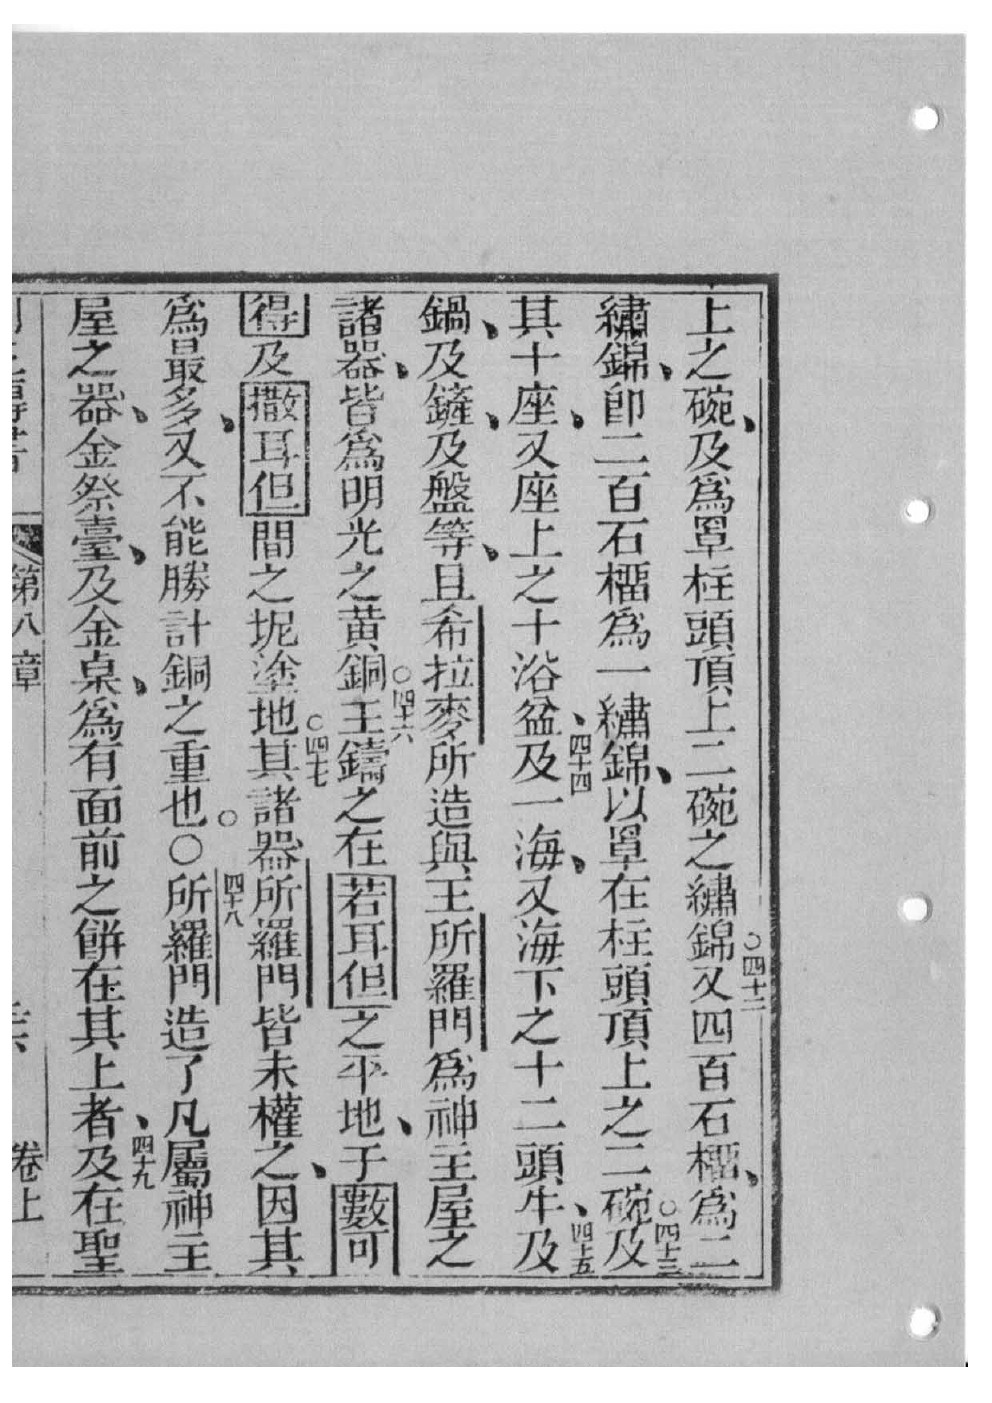 上之碗、及爲罩柱頭頂上二碗之繡錦○四十二又四百石榴、爲二
繡錦、卽二百石榴爲一繡錦、以罩在柱頭頂上之二碗○四十三及
其十座、又座上之十浴盆、四十四及一海、又海下之十二頭牛、四十五及
鍋、及鏟、及盤等、且希拉麥所造與王所羅門爲神主屋之
諸器、皆爲明光之黃銅○四十六王鑄之在若耳但之平地、于數可
得及撒耳但間之坭塗地○四七其諸器所羅門皆未權之、因其
爲最多、又不能勝計銅之重也○○四十八所羅門造了凡屬神主
屋之器、金祭臺、及金桌、爲有面前之餅在其上者、四十九及在聖
第八章
卷上